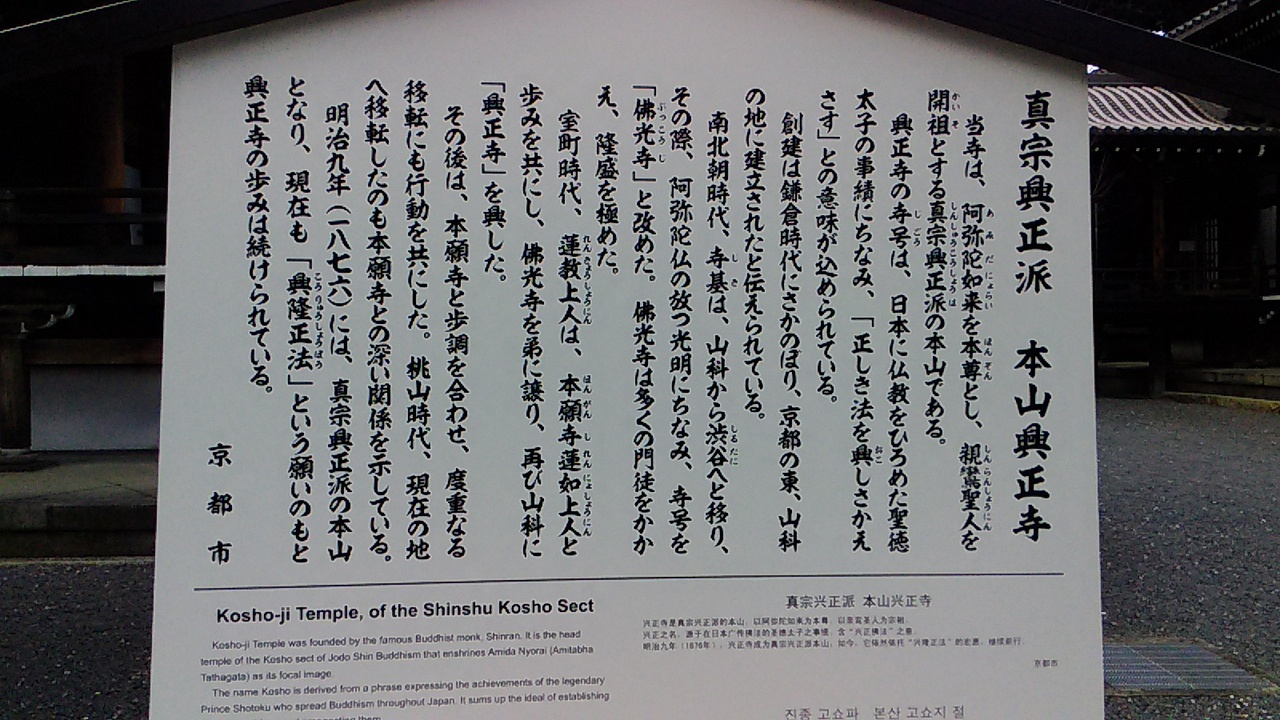 真宗興正派 本山興正寺
当寺は、阿弥陀如来を本尊とし、親鸞聖人を
開祖とする真宗興正派の本山である。
興正寺の寺号は、日本に仏教をひろめた聖徳
太子の事績にちなみ、「正しき法を興しさかえ
さす」との意味が込められている。
創建は鎌倉時代にさかのぼり、京都の東、山科
の地に建立されたと伝えられている。
南北朝時代、寺基は、山科から渋谷へと移り、
その際、阿弥陀仏の放つ光明にちなみ、寺号を
「佛光寺」と改めた。佛光寺は多くの門徒をかか
え、隆盛を極めた。
室町時代、蓮教上人は、本願寺蓮如上人と
歩みを共にし、佛光寺を弟に譲り、再び山科に
「興正寺」を興した。
その後は、本願寺と歩調を合わせ、度重なる
移転にも行動を共にした。桃山時代、現在の地
へ移転したのも本願寺との深い関係を示している。
明治九年（一八七六）には、真宗興正派の本山
となり、現在も「興隆正法」という願いのもと
興正寺の歩みは続けられている。
京都市
Kosho-ji Temple, of the Shinshu Kosho Sect
Kosho-ji Temple was founded by the famous Buddhist monk, Shinran. It is the head
temple of the Kosho sect of Jodo Shin Buddhism that enshrines Amida Nyorai (Amitabha
Tathagata) as its focal image.
The name Kosho is derived from a phrase expressing the achievements of the legendary
Prince Shotoku who spread Buddhism throughout Japan. It sums up the ideal of establishing
真宗兴正派 本山兴正寺
兴正寺是真宗兴正派的本山，以阿弥陀如来为本尊，以亲鸾圣人为宗祖。
兴正之名，源于在日本广传佛法的圣德太子之事绩，含“兴正佛法”之意。
明治九年（1876年），兴正寺成为真宗兴正派本山，如今，它依然依托“兴隆正法”的宏愿，继续前行。
京都市
진종 고쇼파 본산 고쇼지 절